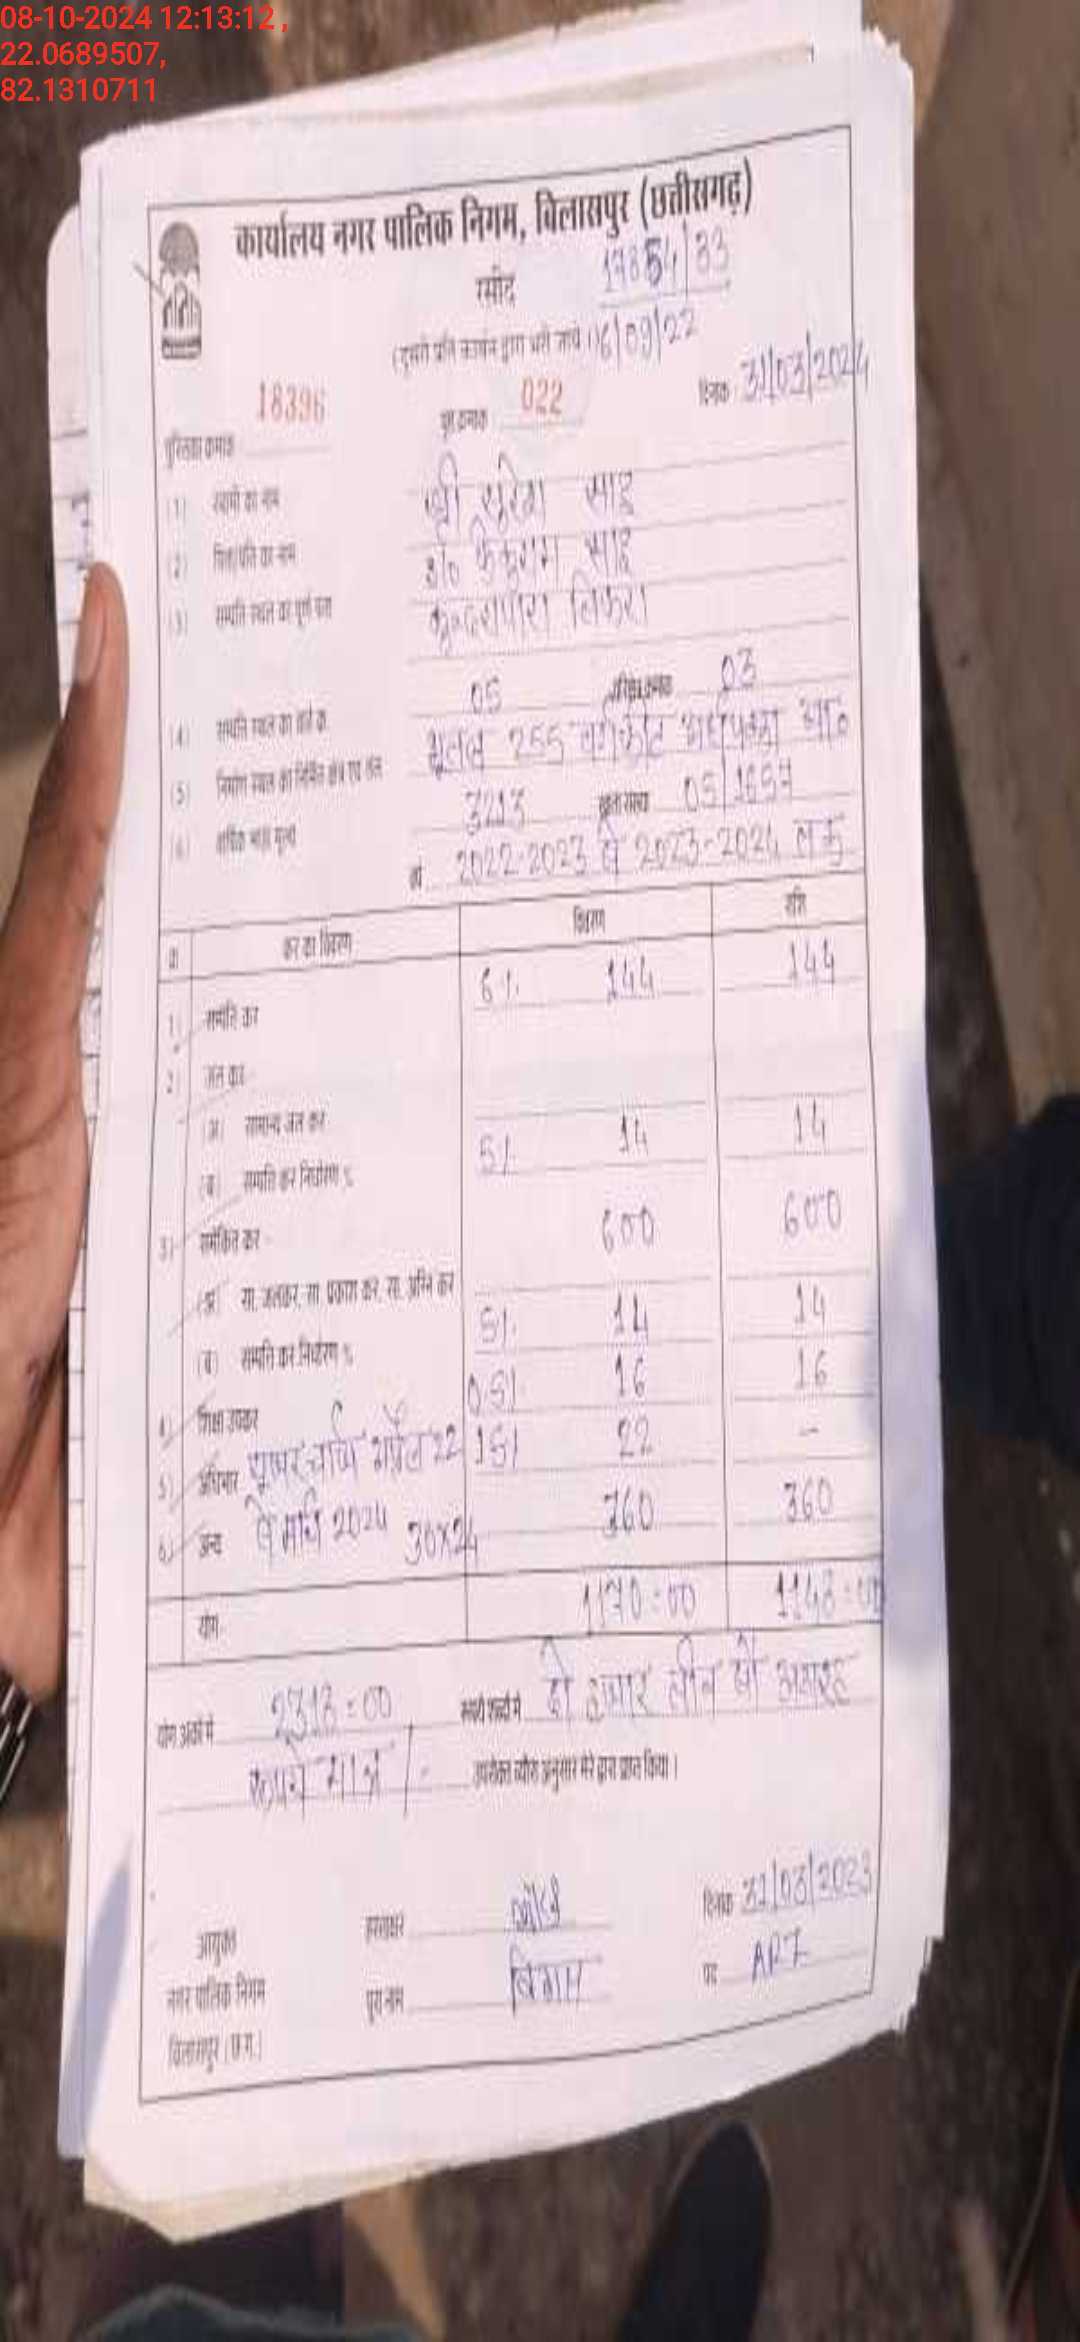 08-10-2024 12:13:12 ,
22.0689507,
82.1310711
कार्यालय नगर पालिक निगम, बिलासपुर (छत्तीसगढ़)
रसीद 17854/33
(दूसरी प्रति कार्बन द्वारा भरी जाये।) 16/09/22
पुस्तिका क्रमांक 18396 पृष्ठ क्रमांक 022 दिनांक 31/03/2024
(1) स्वामी का नाम श्री सुरेश साहू
(2) पिता/पति का नाम साहू
(3) सम्पत्ति स्थल का पूर्ण पता तिफरा
(4) सम्पत्ति स्थल का वार्ड क्र. 05 परिक्षेत्र क्रमांक 03
(5) निर्माण स्थल का निर्मित क्षेत्र एवं तल भूतल 255 वर्गफीट अर्धपक्का आ०
(6) वार्षिक भाड़ा मूल्य 3213 खाता संख्या 05/1657
वर्ष 2022-2023 से 2023-2024 तक
क्र. कर का विवरण विवरण राशि
1) सम्पत्ति कर 6% 144 144
2) जल कर
(अ) सामान्य जल कर
(ब) सम्पत्ति कर निर्धारण % 5% 14 14
3) समेकित कर 600 600
(अ) सा. जलकर, सा. प्रकाश कर, सा. अग्नि कर
(ब) सम्पत्ति कर निर्धारण % 5% 14 14
4) शिक्षा उपकर 0.5% 16 16
5) अधिभार यूजर चार्ज अप्रैल 22 15% 22 -
6) अन्य से मार्च 2024 30x24 360 360
योग 1170=00 1148=00
योग अंकों में 2318=00 रूपये शब्दों में दो हजार तीन सौ अठारह
रूपये मात्र /- उपरोक्त ब्यौरा अनुसार मेरे द्वारा प्राप्त किया।
हस्ताक्षर दिनांक 31/03/2023
आयुक्त
नगर पालिक निगम पूरा नाम पद
बिलासपुर (छ.ग.)